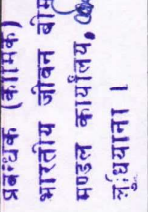 प्रबन्धक (कार्मिक)
भारतीय जीवन बीम
मण्डल कार्यालय,
लुधियाना ।